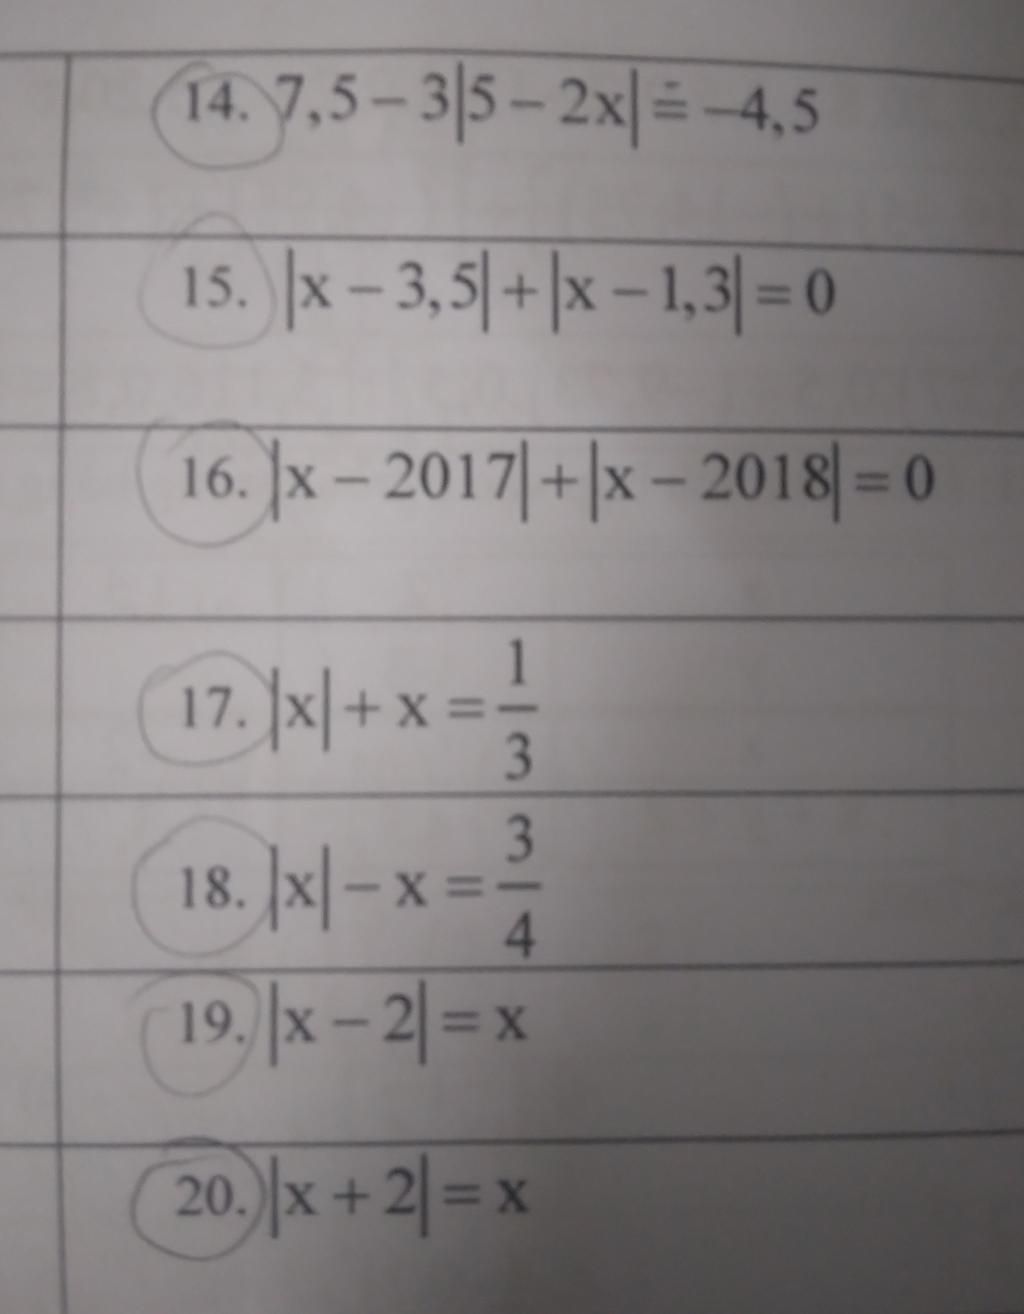 14. 7,5 − 3|5 − 2x| = −4,5
15. |x − 3,5| + |x − 1,3| = 0
16. |x − 2017| + |x − 2018| = 0
17. |x| + x = 1/3
18. |x| − x = 3/4
19. |x − 2| = x
20. |x + 2| = x